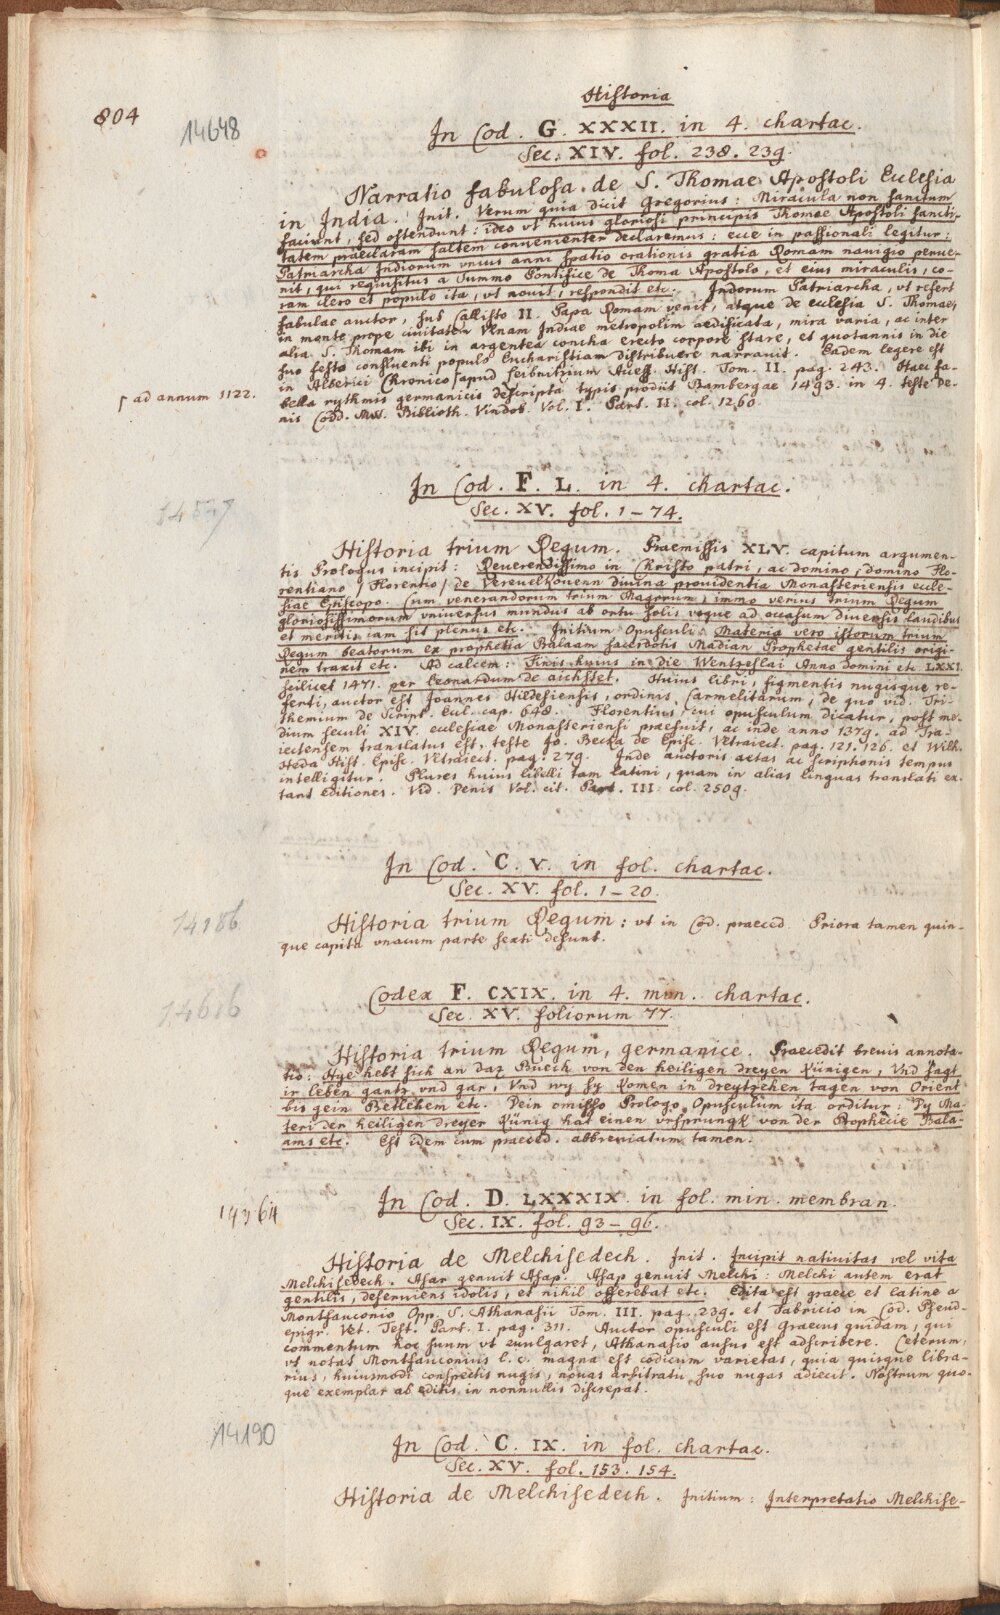 Historia
804
14648
In Cod. G. XXXII. in 4. chartac.
Sec. XIV. fol. 238. 239.
Narratio fabulosa de S. Thomae Apostoli Ecclesia
in India. Init. Verum quia dicit Gregorius: Miracula non sanctum
faciunt, sed ostendunt: ideo vt huius gloriosi principis Thomae Apostoli sancti-
tatem praeclaram saltem conuenienter declaremus: ecce in passionali legitur:
Patriarcha Indiorum vnius anni spatio orationis gratia Romam nauigio perue-
nit, qui requisitus a Summo Pontifice de Thoma Apostolo, et eius miraculis, co-
ram clero et populo ita, vt nouit, respondit etc. Indorum Patriarcha, vt refert
fabulae auctor, sub Callisto II. Papa Romam venit, atque de ecclesia S. Thomae,
in monte prope ciuitatem Vlnam Indiae metropolim aedificata, mira varia, ac inter
alia S. Thomam ibi in argentea concha erecto corpore stare, et quotannis in die
suo festo confluenti populo Eucharistiam distribuere narrauit. Eadem legere est
in Alberici Chronico ⌈ apud Leibnitzium Access. Hist. Tom. II. pag. 243. Haec fa-
⌈ ad annum 1122.
bella rythmis germanicis descripta typis prodiit Bambergae 1493. in 4. teste De-
nis Codd. Mss. Biblioth. Vindob. Vol. I. Part. II. col. 1260.
In Cod. F. L. in 4. chartac.
Sec. XV. fol. 1-74.
14547
Historia trium Regum. Praemissis XLV. capitum argumen-
tis Prologus incipit: Reuerendissimo in Christo patri, ac domino, domino Flo-
rentiano / Florentio / de Vereuelkouenn diuina prouidentia Monasteriensis eccle-
siae Episcopo. Cum venerandorum trium Magorum, immo verius trium Regum
gloriosissimorum vniuersus mundus ab ortu solis vsque ad occasum diuersis laudibus
et meritis iam sit plenus etc. Initium Opusculi: Materia vero istorum trium
Regum beatorum ex prophetia Balaam sacerdotis Madian Prophetae gentilis origi-
nem traxit etc. Ad calcem: Finis huius in die Wentzeslai Anno domini etc. LXXI.
scilicet 1471. per Leonardum de aichstet. Huius libri, figmentis nugisque re-
ferti, auctor est Joannes Hildesiensis, ordinis Carmelitarum, de quo vid. Tri-
themium de Script. Eccl. cap. 648. Florentius, cui opusculum dicatur, post me-
dium seculi XIV. ecclesiae Monasteriensi praefuit, ac inde anno 1379. ad Tra-
iectensem translatus est, teste Jo. Becka de Episc. Vltraiect. pag. 121. 126. et Wilh.
Heda Hist. Episc. Vltraiect. pag. 279. Inde auctoris aetas ac scriptionis tempus
intelligitur. Plures huius libelli tam latini, quam in alias linguas translati ex-
tant editiones. Vid. Denis Vol. cit. Part. III. col. 2509.
In Cod. C. V. in fol. chartac.
Sec. XV. fol. 1-20.
14186
Historia trium Regum: vt in Cod. praeced. Priora tamen quin-
que capita vnacum parte sexti desunt.
Codex F. CXIX. in 4. min. chartac.
Sec. XV. foliorum 77.
14616
Historia trium Regum, germanice. Praecedit breuis annota-
tio: Hye hebt sich an daz Buech von den heiligen dreyen Künigen, Vnd sagt
ir leben gantz vnd gar, Vnd wy sy komen in dreytzehen tagen von Orient
bis gein Betlehem etc. Dein omisso Prologo Opusculum ita orditur: Dy Ma-
teri der heiligen dreyer Künig hat einen vrsprungk von der Prophecie Bala-
ams etc. Est idem cum praeced. abbreviatum tamen.
In Cod. D. LXXXIX. in fol. min. membran.
Sec. IX. fol. 93-96.
14364
Historia de Melchisedech. Init. Incipit natiuitas vel vita
Melchisedech. Asar genuit Asap. Asap genuit Melchi: Melchi autem erat
gentilis, deseruiens idolis, et nihil offerebat etc. Edita est graece et latine a
Montfauconio Opp. S. Athanasii Tom. III. pag. 239. et Fabricio in Cod. Pseud-
epigr. Vet. Test. Part. I. pag. 311. Auctor opusculi est Graecus quidam, qui
commentum hoc suum vt euulgaret, Athanasio ausus est adscribere. Ceterum,
vt notat Montfauconius l. c. magna est codicum varietas, quia quisque libra-
rius, huiusmodi conspectis nugis, nouas arbitratu suo nugas adiecit. Nostrum quo-
que exemplar ab editis in nonnullis discrepat.
14190
In Cod. C. IX. in fol. chartac.
Sec. XV. fol. 153. 154.
Historia de Melchisedech. Initium: Interpretatio Melchise-